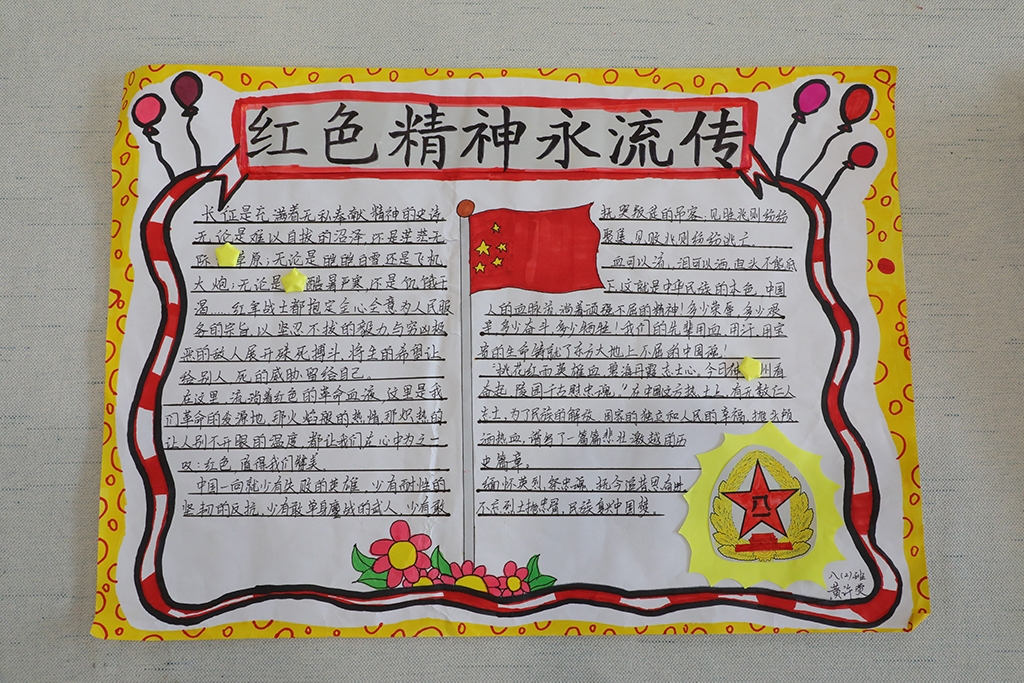 红色精神永流传
长征是充满着无私奉献精神的史诗
无论是难以自拔的沼泽,还是茫茫无
际 草原;无论是皑皑白雪还是飞机
大炮;无论是 酷暑严寒,还是饥饿干
渴……红军战士都抱定全心全意为人民服
务的宗旨,以坚忍不拔的毅力与穷凶极
恶的敌人展开殊死搏斗,将生的希望让
给别人,死的威胁留给自己。
在这里,流淌着红色的革命血液,这里是我
们革命的发源地,那火焰般的热情,那炽热的
让人别不开眼的温度,都让我们在心中为之一
叹:红色,值得我们赞美。
中国一向就少有失败的英雄,少有耐性的
坚韧的反抗,少有敢单身鏖战的武人,少有敢
抚哭叛徒的吊客,见胜兆则纷纷
聚集,见败兆则纷纷逃亡。
血可以流,泪可以洒,但头不能底
这就是中华民族的本色,中国
人的血脉里,淌着顽强不屈的精神!多少荣辱,多少
多少奋斗,多少牺牲!我们的先辈用血,用汗,用宝
贵的生命铸就了东方大地上不屈的中国魂!
“桃花红雨英雄血,碧海丹霞志士心,今日 州看
奋起,陵园千古慰忠魂。”在中国这方热土上,有无数仁人
志士,为了民族的解放、国家的独立和人民的幸福,抛头颅
洒热血,谱写了一篇篇悲壮激越的历
史篇章。
缅怀英烈祭忠魂,抚今追昔思奋进
不忘烈士 忠骨,民族复兴中国梦。
八
八(2)班
黄许雯